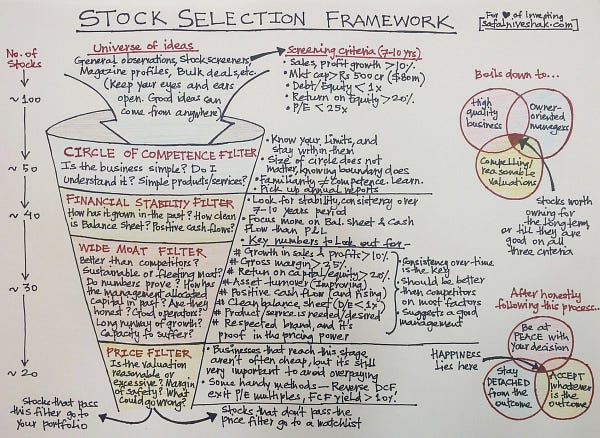 STOCK SELECTION FRAMEWORK
For ♥ of Investing
safalniveshak.com
No. of
Stocks
~100
~50
~40
~30
~20
Universe of ideas
General observations, Stock screeners,
Magazine profiles, Bulk deals, etc.
(Keep your eyes and ears
open. Good ideas can
come from anywhere)
Screening Criteria (7-10 yrs)
• Sales, profit growth >10%
• Mkt cap > Rs 500 cr ($80m)
• Debt/Equity <1x
• Return on Equity >20%
• P/E <25x
CIRCLE OF COMPETENCE FILTER
Is the business simple? Do I
understand it? Simple products/services?
• Know your limits, and
stay within them
• Size of circle does not
matter, knowing boundary does
• Familiarity ≠ competence. Learn.
• Pick up annual reports
FINANCIAL STABILITY FILTER
How has it grown in the past? How clean
is Balance Sheet? Positive cash flows?
• Look for stability, consistency over
7-10 years period
• Focus more on Bal. Sheet & Cash
Flow than P&L
WIDE MOAT FILTER
Better than competitors?
Sustainable or fleeting moat?
Do numbers prove? How has
the management allocated
capital in past? Are they
honest? Good operators?
Long runway of growth?
Capacity to suffer?
• Key numbers to look out for -
# Growth in sales & profits >10%
# Gross margin >
# Return on capital/equity >20%
# Asset turnover (Improving)
# Positive cash flow (and rising)
# Clean balance sheet (D/E <1x)
# Product/service is needed/desired
# Respected brand, and it's
proof in the pricing power
• Consistency over-time
is the key
• Should be better
than competitors
on most factors
• Suggests a good
management
PRICE FILTER
Is the valuation
reasonable or
excessive? Margin
of safety? What
could go wrong?
• Businesses that reach this stage
aren't often cheap, but it's still
very important to avoid overpaying
• Some handy methods — Reverse DCF,
exit P/E multiples, FCF yield > 10%
Stocks that pass
this filter go to
your portfolio
Stocks that don't pass the
price filter go to a watchlist
Boils down to...
High
quality
business
Owner-
oriented
managers
Compelling/
reasonable
valuations
Stocks worth
owning for
the long term,
or till they are
good on all
three criteria
After honestly
following this process...
Be at
PEACE with
your decision
HAPPINESS
lies here
Stay
DETACHED
from the
outcome
ACCEPT
whatever
is the
outcome